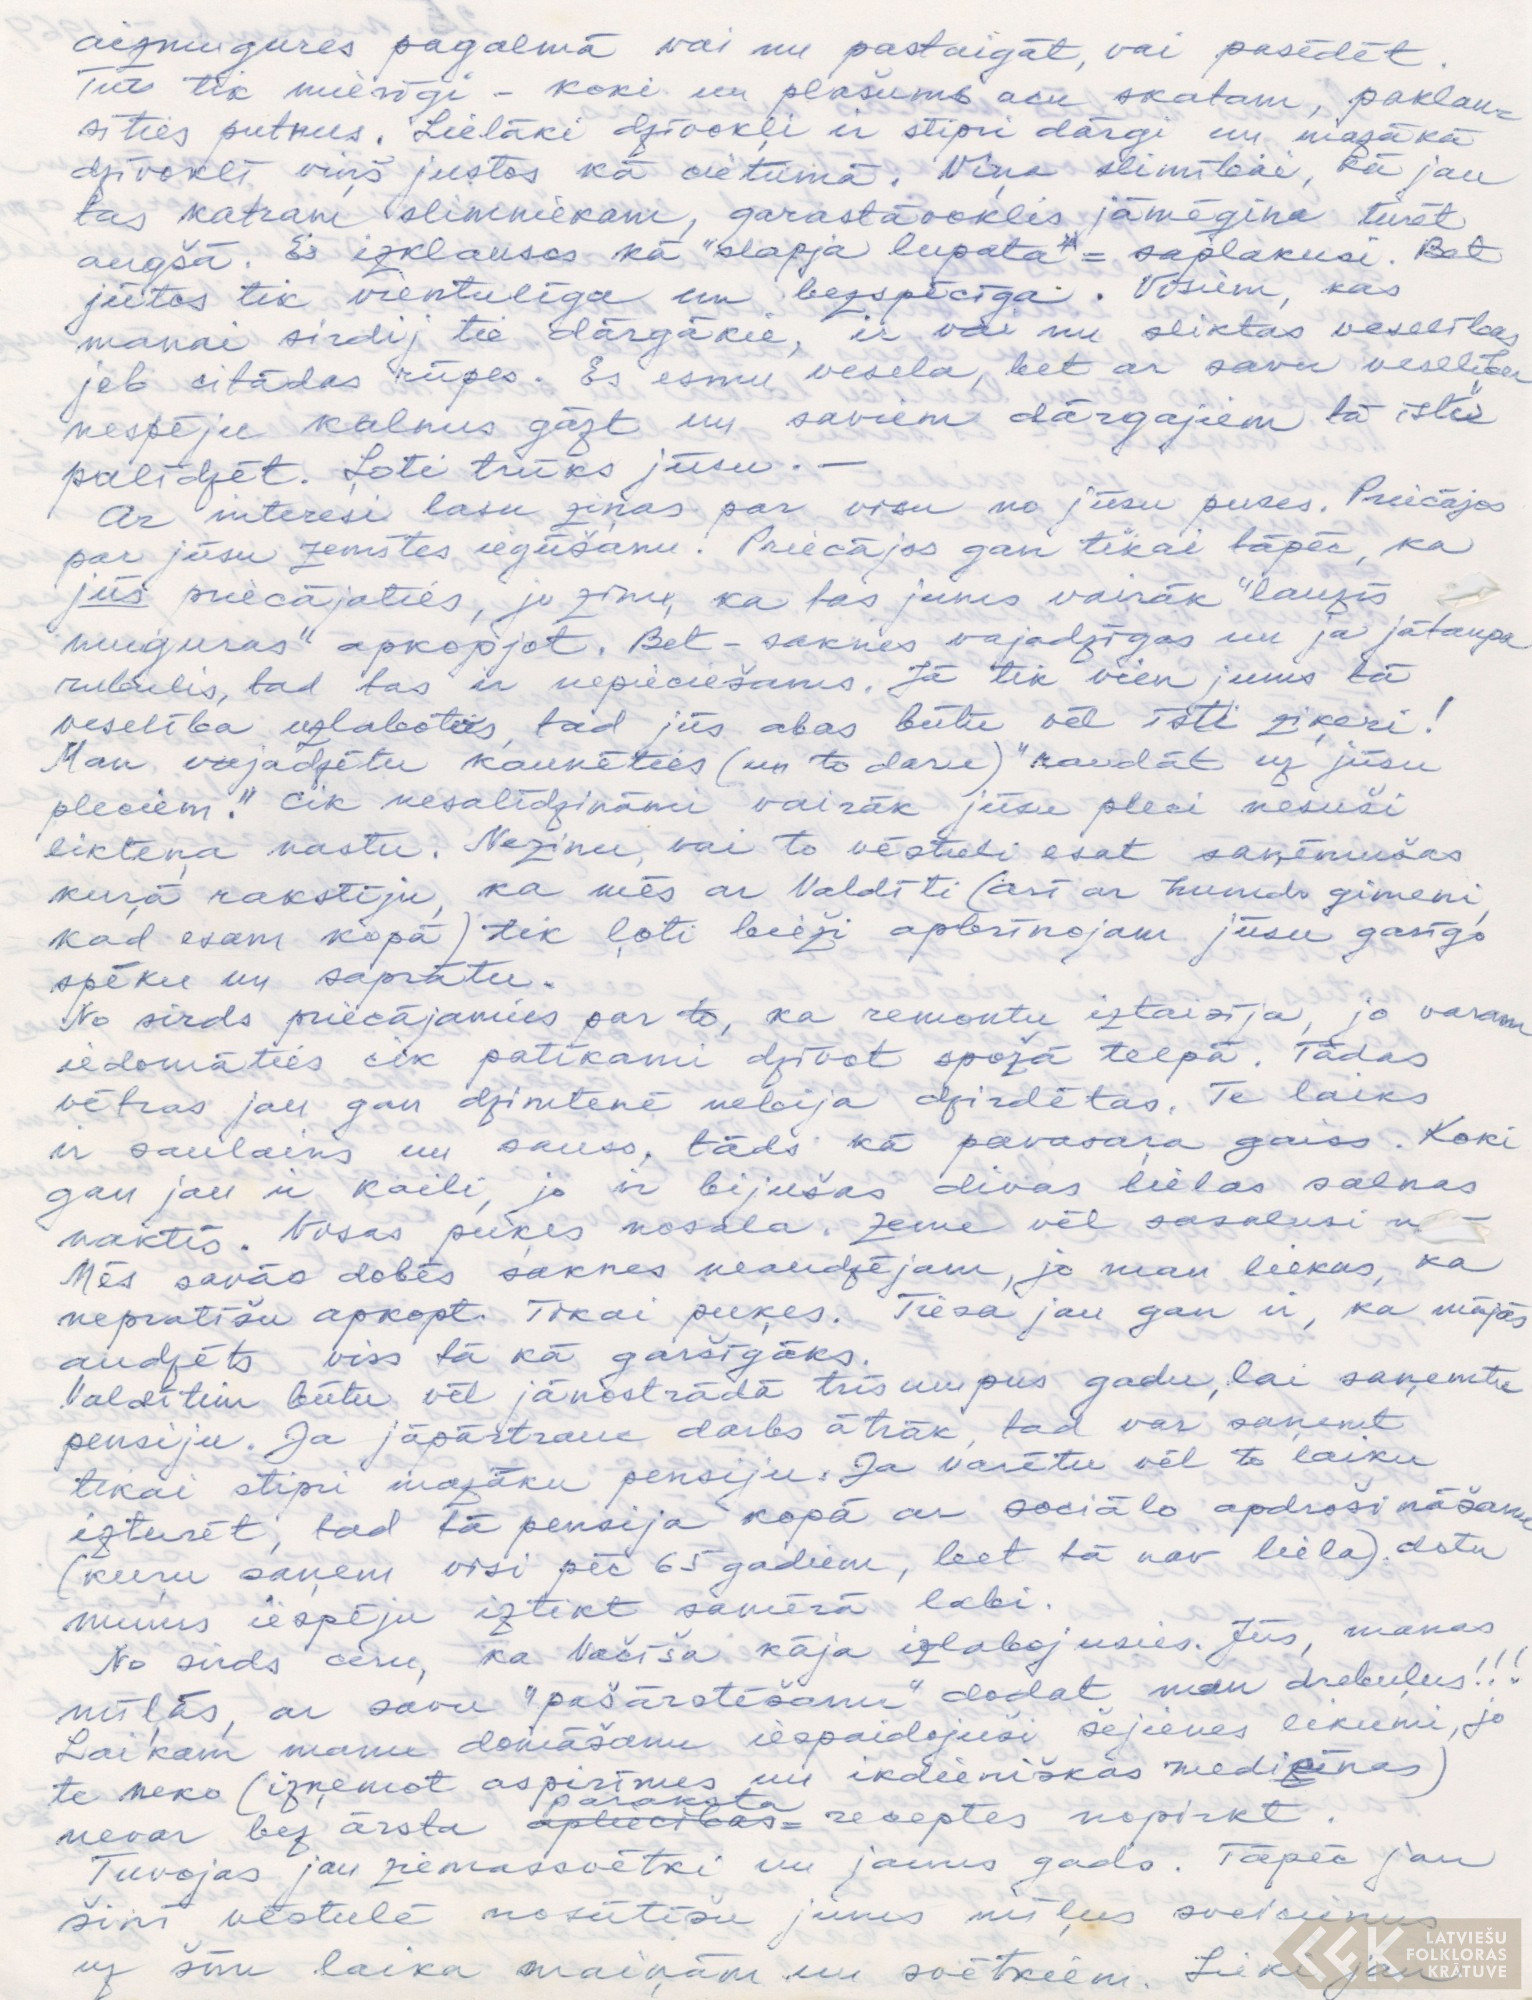 aizmugures pagalmā vai nu pastaigāt, vai pasēdēt.
Tur tik mierīgi – koki un plašums acu skatam, paklau-
sīties putnus. Lielāki dzīvokļi ir stipri dārgi un mazākā
dzīvoklī viņš justos kā cietumā. Viņa slimībai, kā jau
tas katram slimniekam, garastāvoklis jāmēģina turēt
augšā. Es izklausos kā "slapja lupata" = saplakusi. Bet
jūtos tik vientulīga un bezspēcīga. Visiem, kas
manai sirdij tie dārgākie, ir vai nu sliktas veselības
jeb citādas rūpes. Es esmu vesela, bet ar savu veselību
nespēju kalnus gāzt un saviem dārgajiem tā īsti
palīdzēt. Ļoti trūks jūsu. –
Ar interesi lasu ziņas par visu no jūsu puses. Priecājos
par jūsu zemītes iegūšanu. Priecājos gan tikai tāpēc, ka
jūs priecājaties, jo zinu, ka tas jums vairāk "lauzīs
muguras" apkopjot. Bet – saknes vajadzīgas un ja jātaupa
rubulis, tad tas ir nepieciešams. Jā tik vien jums tā
veselība uzlabotos, tad jūs abas būtu vēl īsti ziķeri!
Man vajadzētu kaunēties (un to daru) "raudāt uz jūsu
pleciem." Cik nesalīdzināmi vairāk jūsu pleci nesuši
likteņa nastu. Nezinu, vai to vēstuli esat saņēmušas
kurā rakstīju, ka mēs ar Valdīti (arī ar gimeni,
kad esam kopā) tik ļoti bieži apbrīnojam jūsu garīgo
spēku un saprātu.
No sirds priecājamies par to, ka remontu iztaisīja, jo varam
iedomāties cik patīkami dzīvot spožā telpā. Tādas
vētras jau gan dzimtenē nebija dzirdētas. Te laiks
ir saulains un sauss, tāds kā pavasara gaiss. Koki
gan jau ir kaili, jo ir bijušas divas lielas salnas
naktīs. Visas puķes nosala. Zeme vēl sasalusi n –
Mēs savās dobēs saknes neaudzējam, jo man liekas, ka
nepratīšu apkopt. Tikai puķes. Tiesa jau gan ir, ka mājās
audzēts viss tā kā garšīgāks.
Valdītim būtu vēl jānostrādā trīsarpus gadu, lai saņemtu
pensiju. Ja jāpārtrauc darbs ātrāk, tad var saņemt
tikai stipri mazāku pensiju. Ja varētu vēl to laiku
izturēt, tad tā pensija kopā ar sociālo apdrošināšanu
(kuru saņem visi pēc 65 gadiem, bet tā nav liela) dotu
mums iespēju iztikt samērā labi.
No sirds ceru, ka Večiša kāja izlabojusies. Jūs, manas
mīļās, ar savu "pašārstēšanu" dodat man drebuļus!!!
Laikam manu domāšanu iespaidojuši šejienes likumi, jo
te neko (izņemot aspirīnus un ikdienišķas medicīnas)
nevar bez ārsta apliecības= paraksta receptes nopirkt.
Tuvojas jau ziemassvētki un jauns gads. Tāpēc jau
šinī vēstulē nosūtīšu jums mīļus sveicienus
uz šīm laika maiņām un svētkiem. Lieki jau
LATVIEŠU
FOLKLORAS
KRĀTUVE